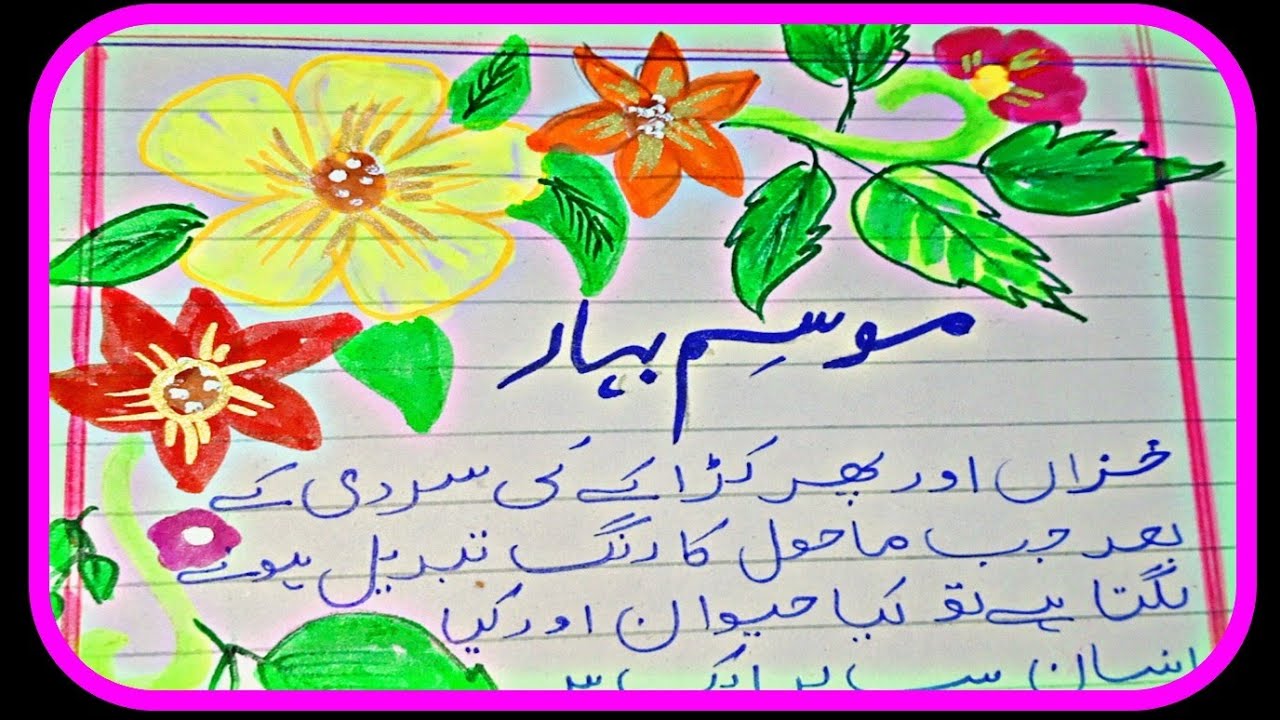 موسِم بہار
خزاں اور پھر کڑاکے کی سردی کے
بعد جب ماحول کا رنگ تبدیل ہونے
لگتا ہے تو کیا حیوان اور کیا
انسان سب پر ایک